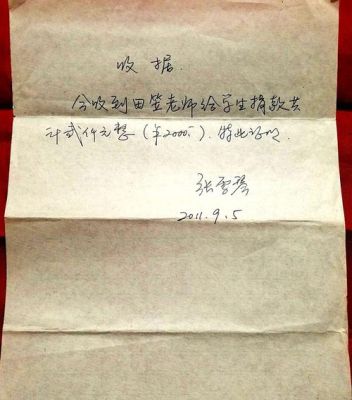 收据.
今收到田笠老师给学生捐款共
计贰仟元整(¥2000-). 特此证明.
张雪琴
2011.9.5